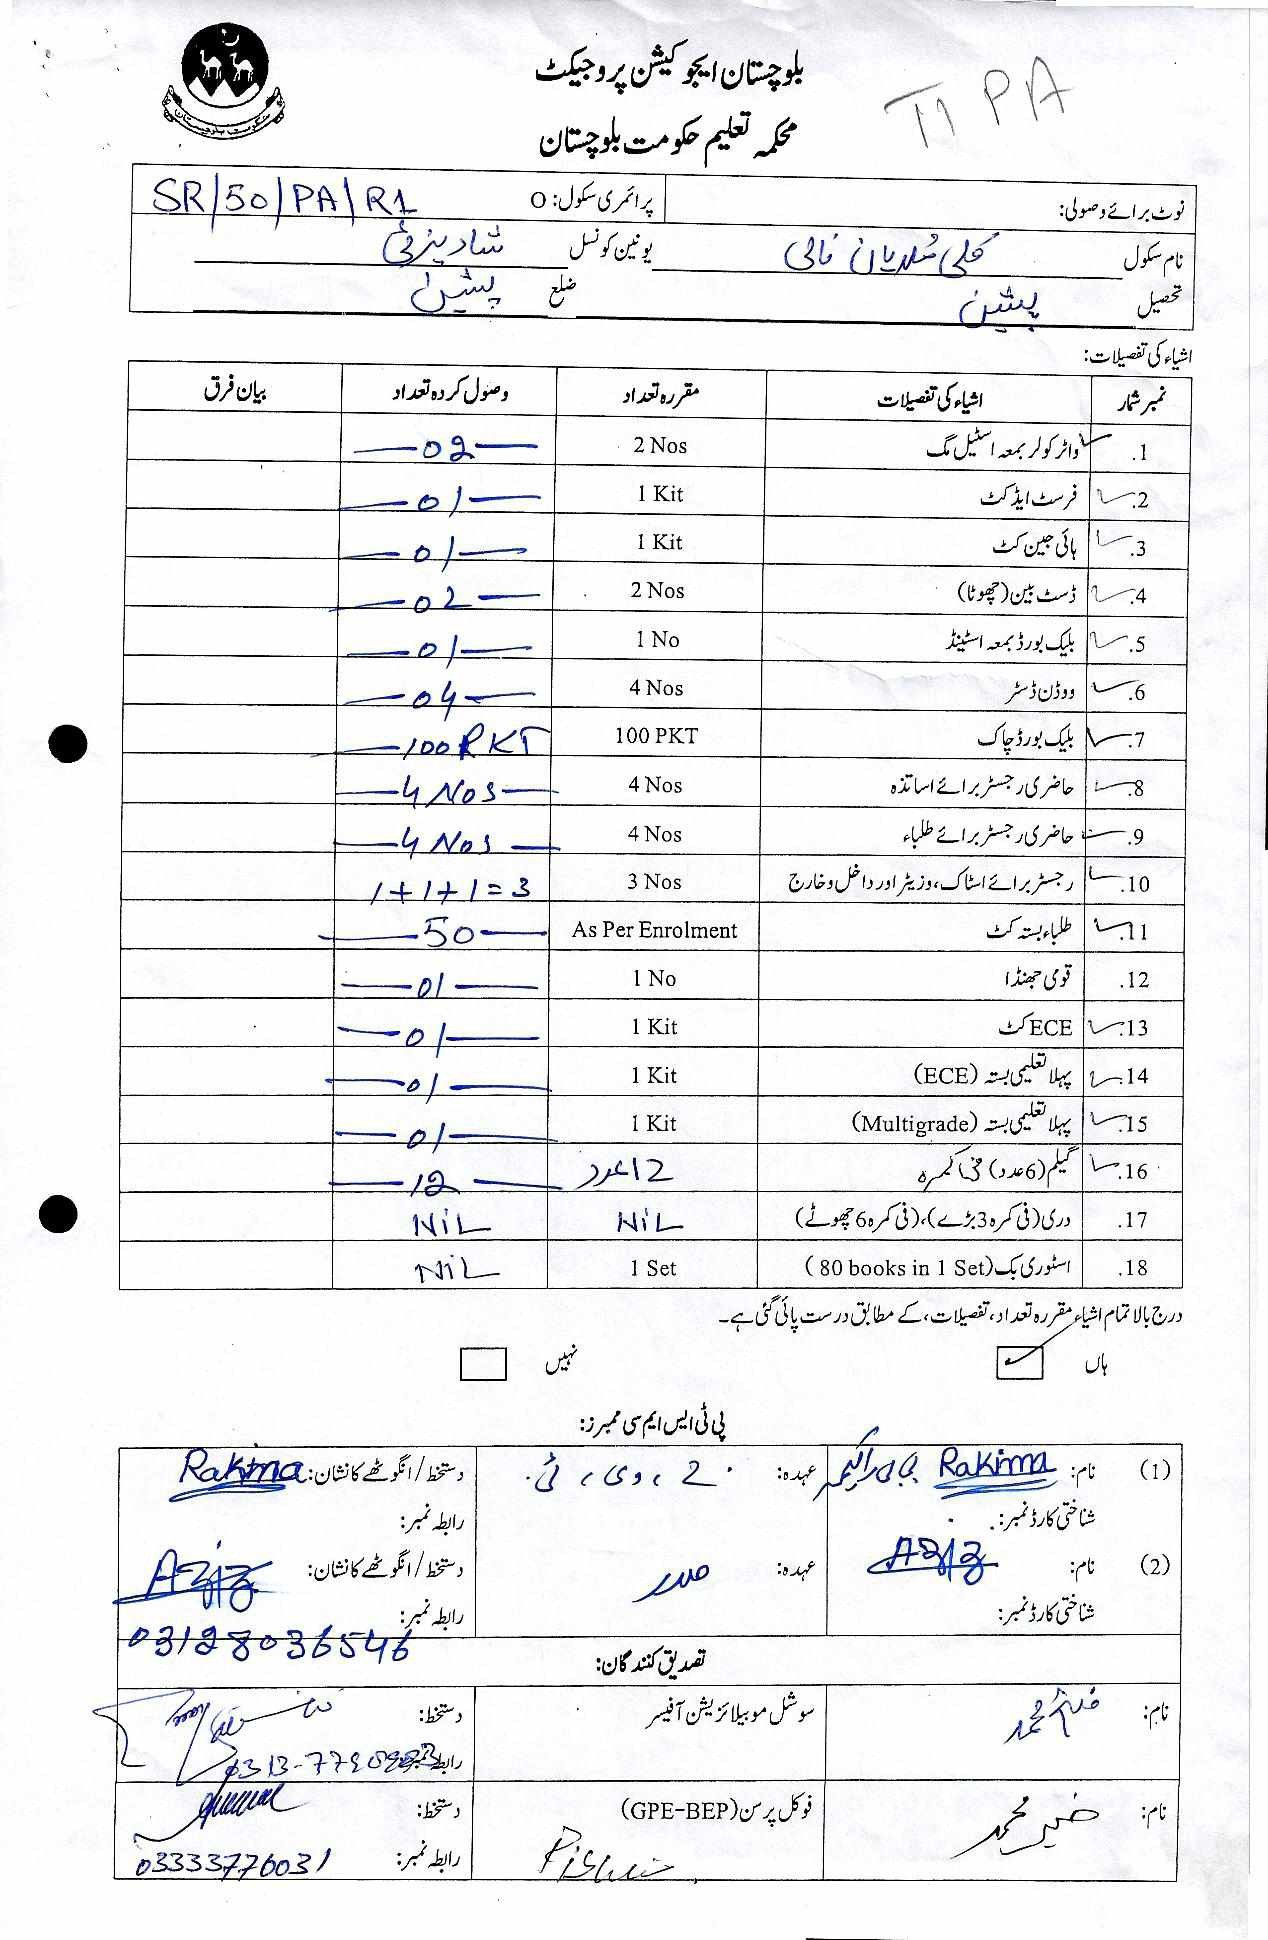 بلوچستان ایجوکیشن پروجیکٹ
TI PA
محکمہ تعلیم حکومت بلوچستان
حکومت بلوچستان
نوٹ برائے وصولی: پرائمری سکول: O SR/50/PA/R1
نام سکول کلی یونین کونسل شادیزئی
تحصیل پشین ضلع پشین
اشیاء کی تفصیلات:
نمبر شمار اشیاء کی تفصیلات مقررہ تعداد وصول کردہ تعداد بیان فرق
1. واٹر کولر بمعہ اسٹیل مگ 2 Nos 02
2. فرسٹ ایڈ کٹ 1 Kit 01
3. ہائی جین کٹ 1 Kit 01
4. ڈسٹ بین (چھوٹا) 2 Nos 02
5. بلیک بورڈ بمعہ اسٹینڈ 1 No 01
6. ووڈن ڈسٹر 4 Nos 04
7. بلیک بورڈ چاک 100 PKT 100 PKT
8. حاضری رجسٹر برائے اساتذہ 4 Nos 4 Nos
9. حاضری رجسٹر برائے طلباء 4 Nos 4 Nos
10. رجسٹر برائے اسٹاک، وزیٹر اور داخل و خارج 3 Nos 1+1+1=3
11. طلباء بستہ کٹ As Per Enrolment 50
12. قومی جھنڈا 1 No 01
13. ECE کٹ 1 Kit 01
14. پہلا تعلیمی بستہ (ECE) 1 Kit 01
15. پہلا تعلیمی بستہ (Multigrade) 1 Kit 01
16. گیلم (6 عدد) فی کمرہ 12 عدد 12
17. دری (فی کمرہ 3 بڑے)، (فی کمرہ 6 چھوٹے) NiL NiL
18. اسٹوری بک (80 books in 1 Set) 1 Set NiL
درج بالا تمام اشیاء مقررہ تعداد، تفصیلات، کے مطابق درست پائی گئی ہے۔
ہاں نہیں
پی ٹی ایس ایم سی ممبرز:
(1) نام: Rakima عہدہ: جے، وی، ٹی دستخط/انگوٹھے کا نشان: Rakima
شناختی کارڈ نمبر: رابطہ نمبر:
(2) نام: Aziz عہدہ: صدر دستخط/انگوٹھے کا نشان: Aziz
شناختی کارڈ نمبر: رابطہ نمبر:
03128036546
تصدیق کنندگان:
نام: محمد سوشل موبیلائزیشن آفیسر دستخط:
رابطہ نمبر:
نام: خیر محمد فوکل پرسن (GPE-BEP) دستخط:
Pishin رابطہ نمبر: 03333776031